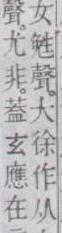 女甡聲。大徐作从
聲。尤非。葢玄應在